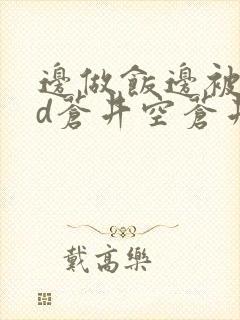 邊做飯邊被
d蒼井空蒼井
戴高樂